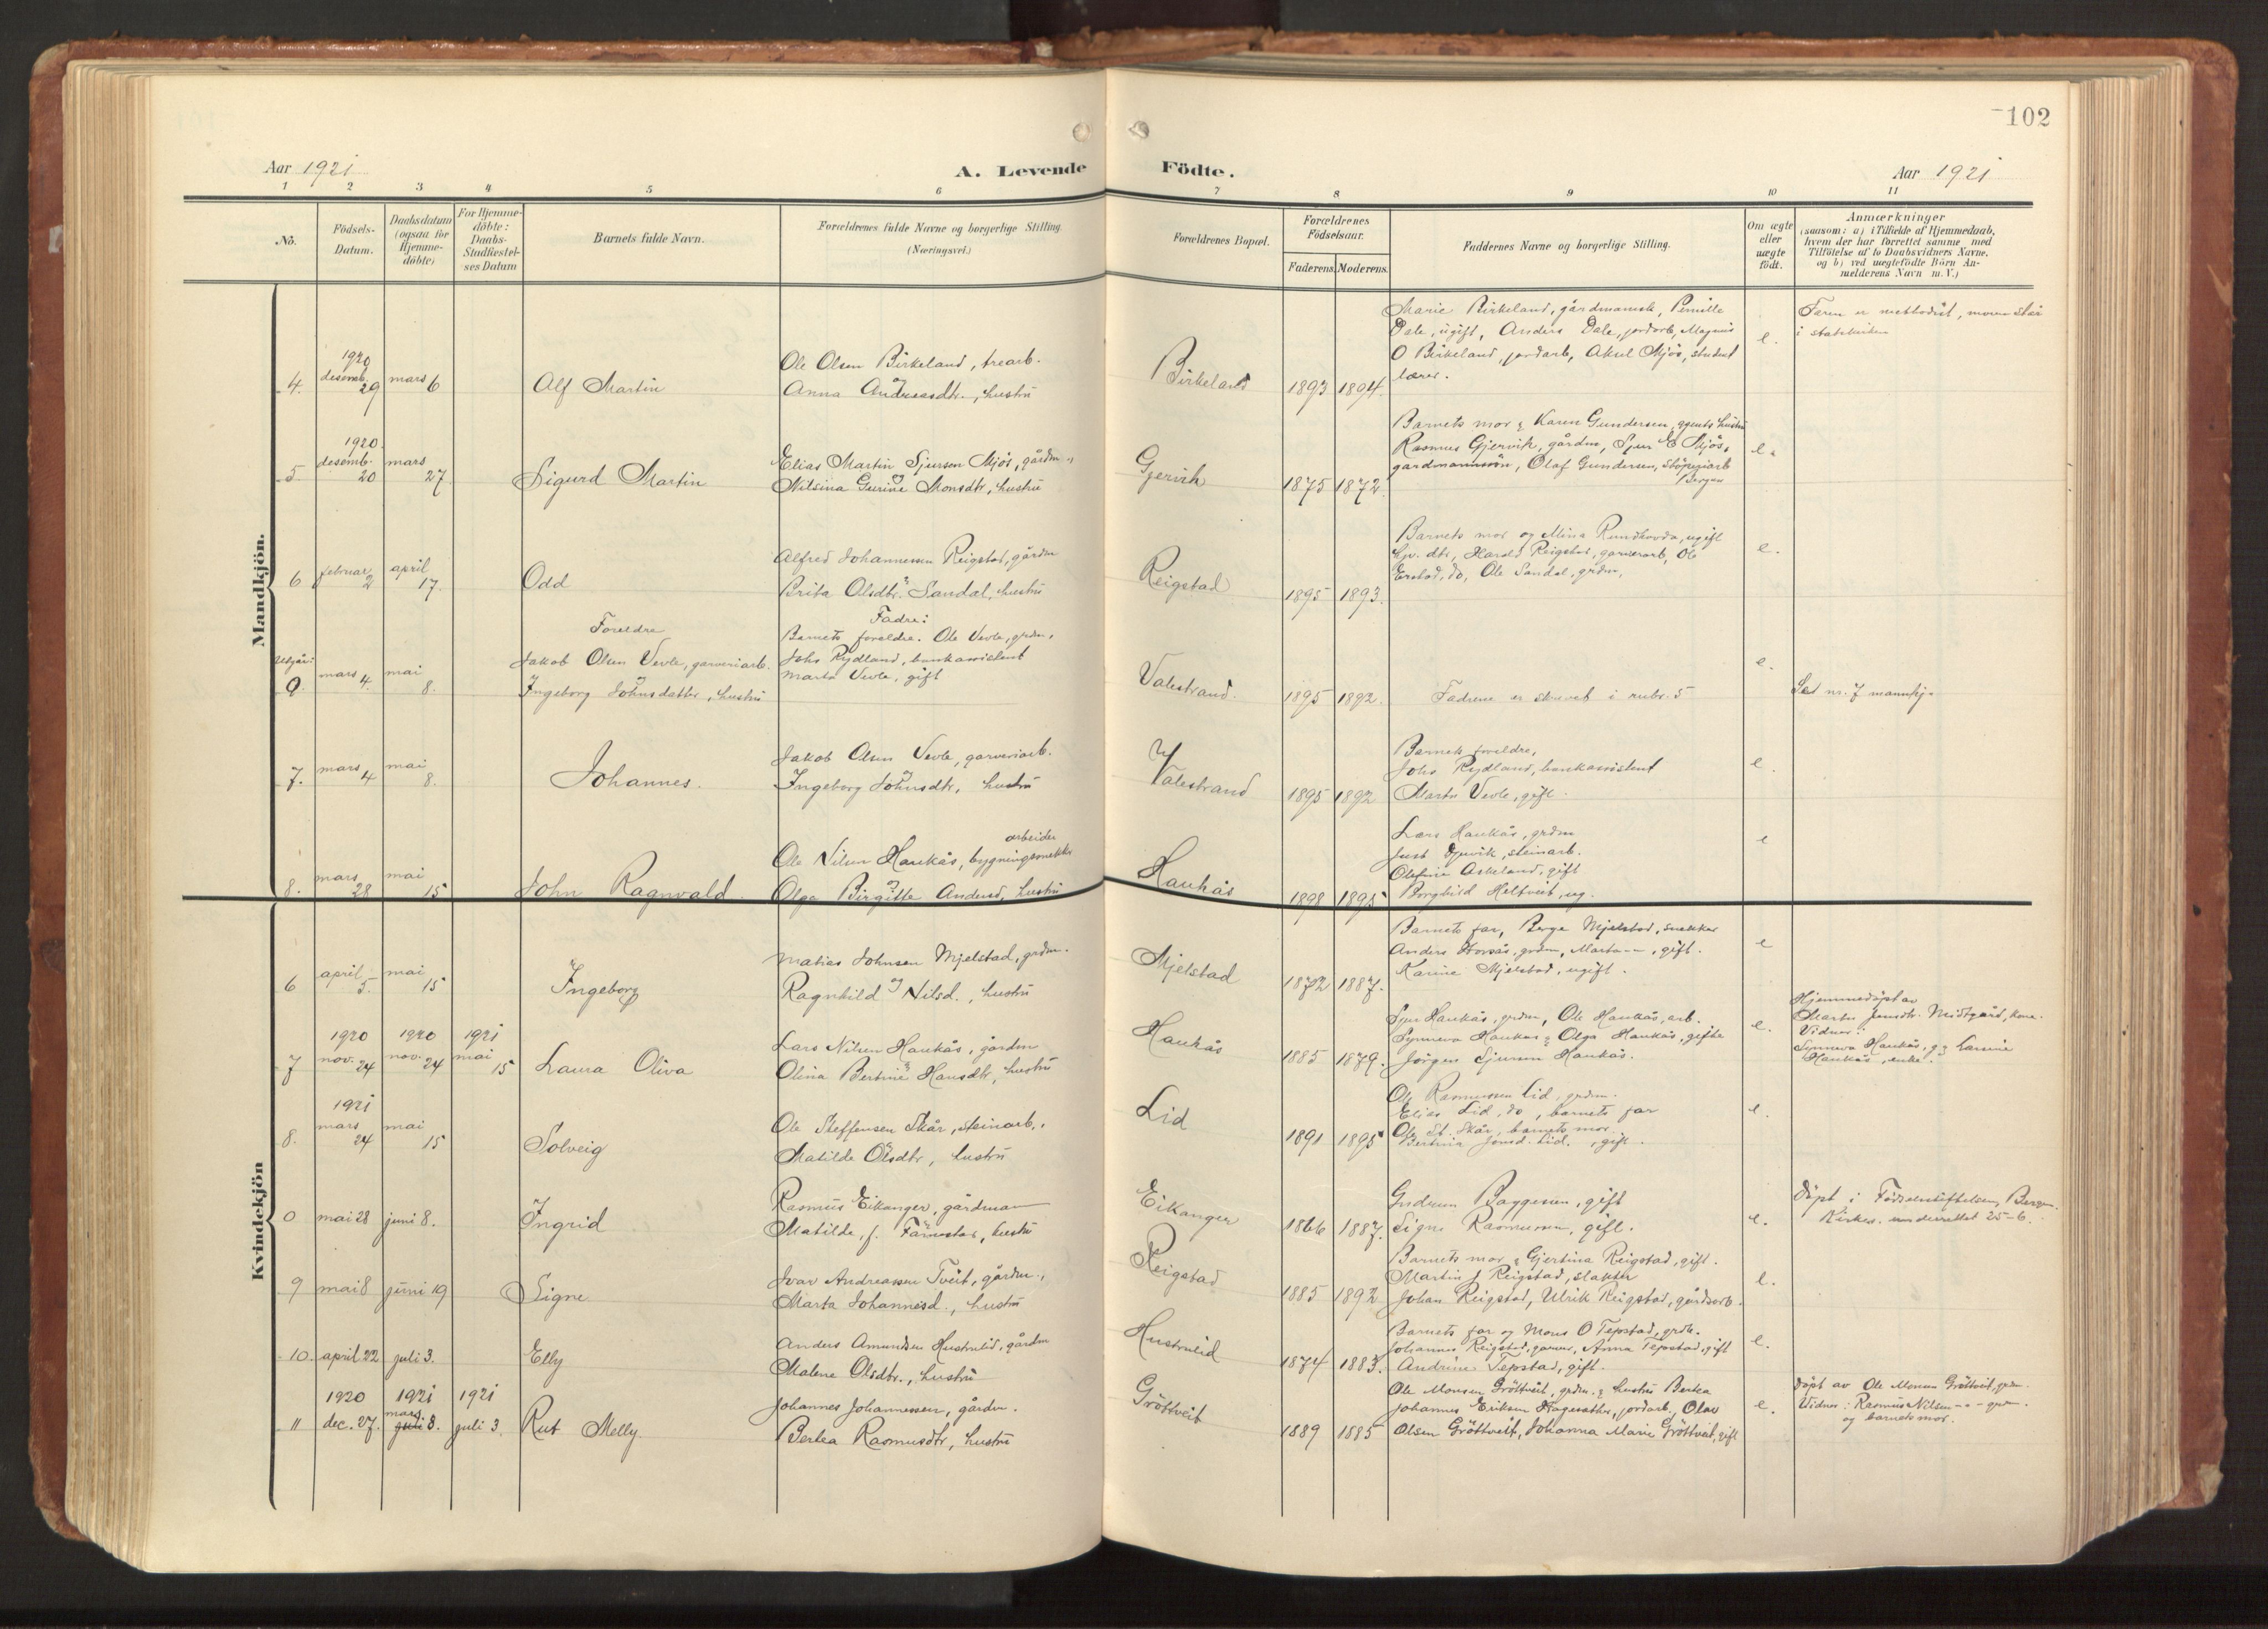 102
Aar 1921
A. Levende Födte.
Aar 1921
1 2 3 4 5 6 7 8 9 10 11
No.
Födsels-
Datum.
Daabsdatum
(ogsaa for
Hjemme-
döbte)
For Hjemme-
döbte:
Daabs-
Stadfæstel-
ses Datum
Barnets fulde Navn.
Forældrenes fulde Navne og borgerlige Stilling.
(Næringsvei.)
Forældrenes Bopæl.
Forældrenes
Födselsaar.
Faderens. Moderens.
Faddernes Navne og borgerlige Stilling.
Om ægte
eller
uægte
födt.
Anmærkninger
(saasom: a) i Tilfælde af Hjemmedaab,
hvem der har forrettet samme med
Tilföielse af to Daabsvidners Navne.
og b) ved uægtefödte Börn An-
melderens Navn m. V.)
Mandkjön.
4. 1920 desemb. 29 mars 6
Alf Martin
Ole Olsen Birkeland, trearb.
og
Anna Andreasdtr., hustru
Birkeland
1893 1894.
Marie Birkeland, gårdmannsk, Pernille
Dale, ugift, Anders Dale, jordarb, Magnus
O Birkeland, jordarb, Aksel Mjös, student
lærer.
e.
Faren er methodist, moren står
i statskirken
5. 1920. desemb. 20 mars 27.
Sigurd Martin
Elias Martin Sjursen Mjös, gårdm.,
og
Nilsina Gurine Monsdtr, hustru
Gjervik
1875 1872.
Barnets mor & Karen Gundersen, agents hustru
Rasmus Gjervik, gårdm, Sjur E Mjös,
gardmannssön, Olaf Gundersen, stöperiarb
Bergen
e.
6 februar 2 april 17.
Odd
Alfred Johannesen Reigstad, gårdm
Brita Olsdtr. Sandal, hustru
Reigstad
1895 1893.
Barnets mor og Mina Rundhovda, ugift
Gv. dtr, Harald Reigstad, garverarb, Ole
Erstad, do, Ole Sandal, grdm,
e.
0. mars 4. mai 8.
Foreldre
Jakob Olsen Vevle, garveriarb.
Ingeborg Johnsdatter, hustru
Fadre:
Barnets foreldre. Ole Vevle, grdm,
Johs Rydland, bankassistent
Marta Vevle, gift
Valestrand.
1895 1892.
Fadrene er skrevet i rubr. 5
e.
Sed nr. 7 mannkj.
7. mars 4 mai 8.
Johannes.
Jakob Olsen Vevle, garveriarb.
og
Ingeborg Johnsdtr, hustru
Valestrand
1895 1892
Barnets foreldre,
Johs Rydland, bankassistent
Marta Vevle, gift.
e.
8. mars 28 mai 15
John Ragnvald
arbeider
Ole Nilsen Haukås, bygningssnekker
og
Olga Birgitte Andersd, hustru
Haukås
1898 1895
Lars Haukås, grdm
Just Dyrvik, steinarb.
Olefine Askeland, gift
Borghild Heltveit, ug.
e
Kvindekjön
6 april 5. mai 15
Ingeborg
Matias Johnsen Mjelstad, grdm.
og
Ragnhild Nilsd., hustru
Mjelstad
1872 1887.
Barnets far, Berge Mjelstad, snekker
Anders Horsås, grdm, Marta -"-, gift.
Karine Mjelstad, ugift.
e
7 1920 nov. 24 1920 nov. 24 1921 mai 15
Laura Oliva
Lars Nilsen Haukås, gårdm
Olina Bertine Hansdtr, hustru
Haukås
1885 1879.
Sjur Haukås, grdm, Ole Haukås, arb.
Synneva Haukås & Olga Haukås, gifte
Jörgen Sjursen Haukås.
e.
Hjemmedöpt av
Marta Jensdtr. Midtgård, kone.
Vidner:
Synneva Haukås, g. & Larsine
Haukås, enke.
8. 1921 mars 24 mai 15
Solveig
Ole Steffensen Skår, steinarb.,
Matilde Olsdtr, hustru
Lid
1891 1895
Ole Rasmussen Lid, grdm.
Elias Lid, do, barnets far
Ole St. Skår, barnets mor
Bertina Jonsd. Lid, gift.
e.
0 mai 28 juni 8.
Ingrid
Rasmus Eikanger, gårdman
Matilde, f. Fammestad, hustru
Eikanger
1866 1887.
Gudrun Baggesen, gift
Signe Rasmussen, gift.
e.
Döpt i Födselsstiftelsen, Bergen.
Kirkev. underrettet 25-6.
9 mai 8 juni 19
Signe
Ivar Andreassen Tveit, gårdm.,
Marta Johannesd., hustru
Reigstad
1885 1892
Barnets mor & Gjertina Reigstad, gift.
Martin J Reigstad, slakter
Johan Reigstad, Ulrik Reigstad, gårdsarb.
e.
10. april 22 juli 3.
Elly
Anders Amundsen Hustrulid, gårdm
Malene Olsdtr., hustru
Hustrulid
1874 1883.
Barnets far og Mons O Tepstad, grdm.
Johannes Reigstad, garver, Anna Tepstad, gift
Andrine Tepstad, gift.
e.
11 1920 dec. 27. 1921 mars 8. 1921 juli 3.
Rut Melly.
Johannes Johannessen, gårdm.
Bertea Rasmusdtr, hustru
Gröttveit
1889 1885
Ole Monsen Gröttveit, grdm. & hustru Bertea
Johannes Eriksen Hagesæther, jordarb, Olav
Olsen Gröttveit, Johanna Marie Gröttveit, gift
e.
Döpt av Ole Monsen Gröttveit, grdm.
Vidner: Rasmus Nilsen -"- grdm.
og barnets mor.